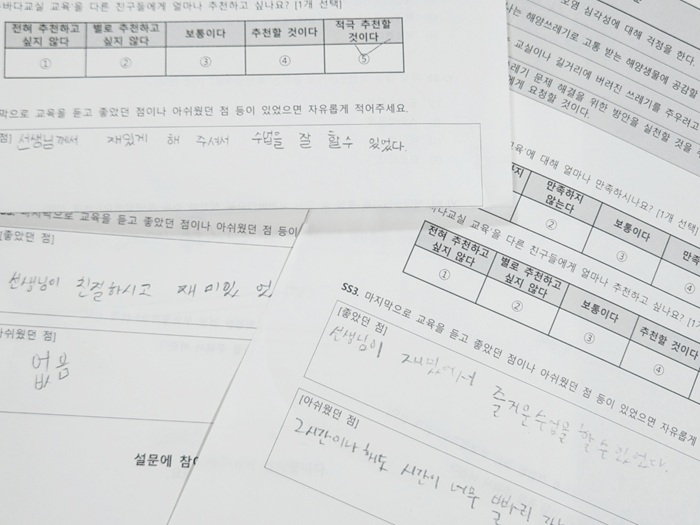 바다교실 교육'을 다른 친구들에게 얼마나 추천하고 싶나요? [1개 선택]
전혀 추천하고 싶지 않다
별로 추천하고 싶지 않다
보통이다
추천할 것이다
적극 추천할 것이다
① ② ③ ④ ⑤
막으로 교육을 듣고 좋았던 점이나 아쉬웠던 점 등이 있었으면 자유롭게 적어주세요.
점] 선생님께서 재밌게 해 주셔서 수업을 잘 할수 있었다.
마지막으로 교육을 듣고 좋았던 점이나 아쉬웠던 점 등이
좋았던 점]
선생님이 친절하시고 재미있 었
아쉬웠던 점]
없음
설문에 참여
오염 심각성에 대해 걱정을 한다.
나는 해양쓰레기로 고통 받는 해양생물에 공감할
교실이나 길거리에 버려진 쓰레기를 주우려고
레기 문제 해결을 위한 방안을 실천할 것을
에게 요청할 것이다.
교육'에 대해 얼마나 만족하시나요? [1개 선택]
만족하지 않는다
보통이다
만족
② ③ ④
바다교실 교육'을 다른 친구들에게 얼마나 추천하고 싶나요? [1
전혀 추천하고 싶지 않다
별로 추천하고 싶지 않다
보통이다
추천할 것이다
① ② ③ ④
SS3. 마지막으로 교육을 듣고 좋았던 점이나 아쉬웠던 점 등이 있었으면 자유롭게
[좋았던 점]
선생님이 재밌에서 즐거운수업을 할 수 있었다.
[아쉬웠던 점]
2시간이나 해도 시간이 너무 빨리